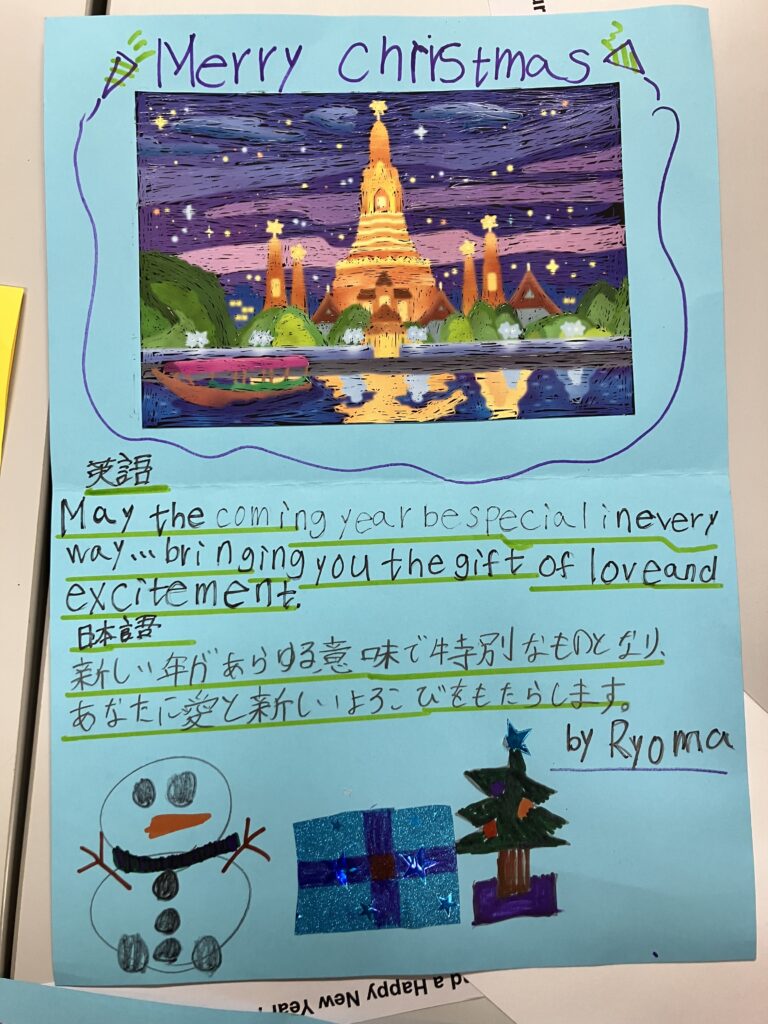 Merry christmas
英語
May the coming year be special in every
way... bringing you the gift of love and
excitement.
日本語
新しい年があらゆる意味で特別なものとなり、
あなたに愛と新しいよろこびをもたらします。
by Ryoma
d a Happy New Year